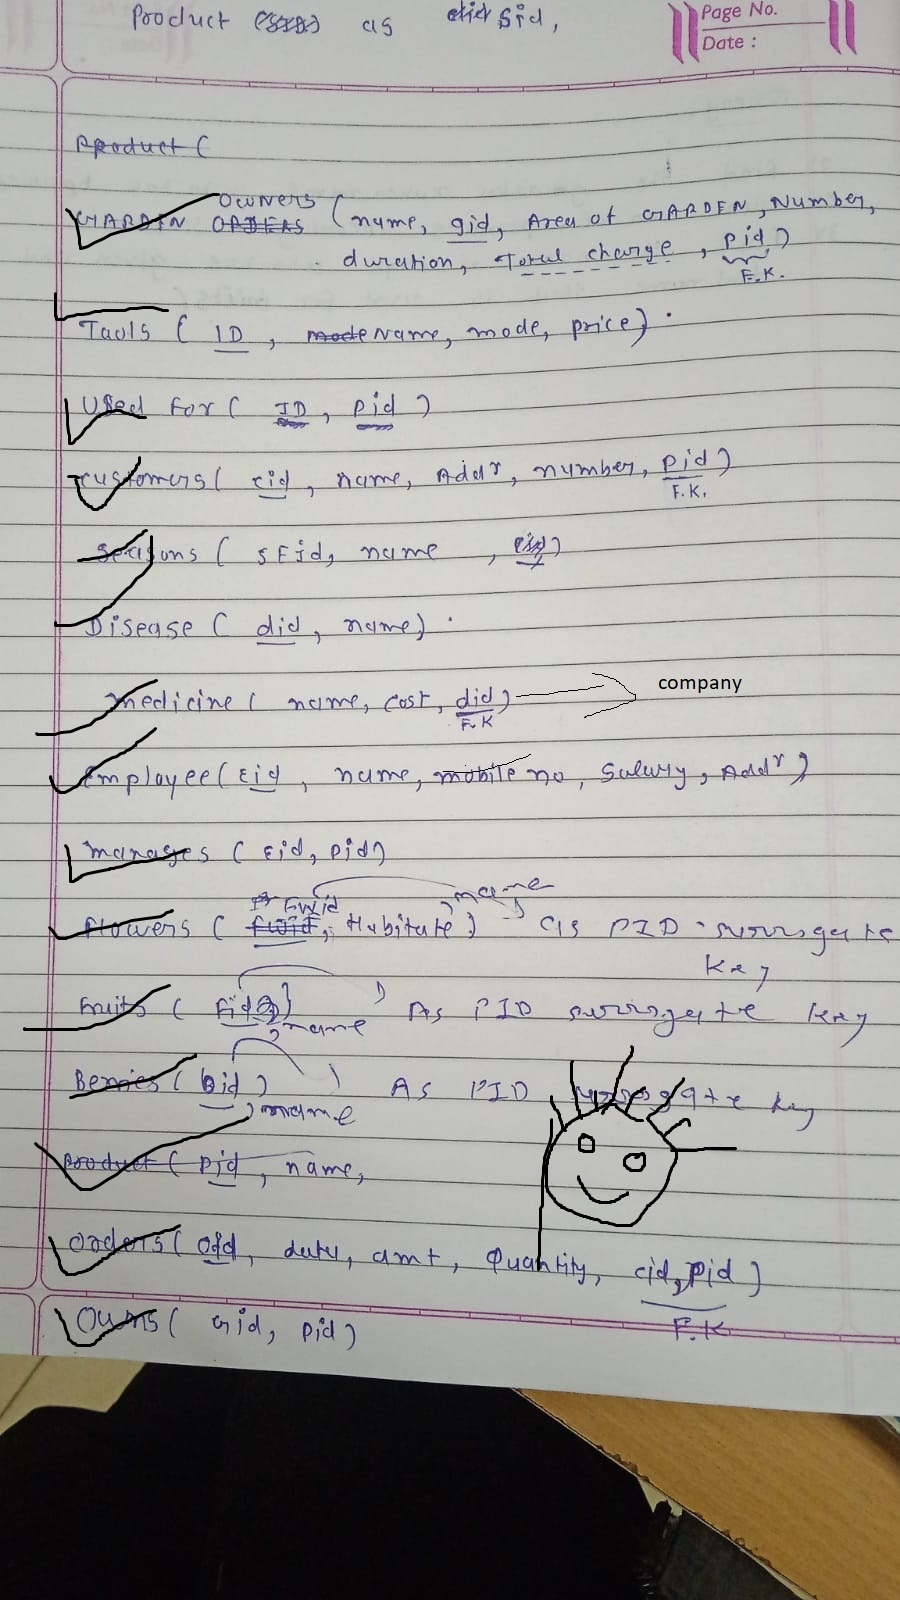 Product as Sid,
Page No.
Date :
Product (
GARDEN owners (name, gid, Area of GARDEN, Number,
duration, Total charge, pid)
F.K.
Tools ( ID, Name, mode, price).
Used For ( ID, pid )
customers( cid, name, Addr, number, pid)
F.K.
Seasons ( SEid, name,
Disease ( did, name).
medicine ( name, cost, did) company
F.K
Employee(Eid, name, mobile no, Salary, Addr)
manages ( Eid, pid)
name
Fwid
Flowers ( Habitate) as PID surrogate
Key
Fruits ( Fid) As PID surrogate key
, name
Berries( bid) As PID surrogate key
, name
product( pid, name,
Orders( Oid, date, amt, Quantity, cid, pid )
F.K
Owns( Gid, pid)